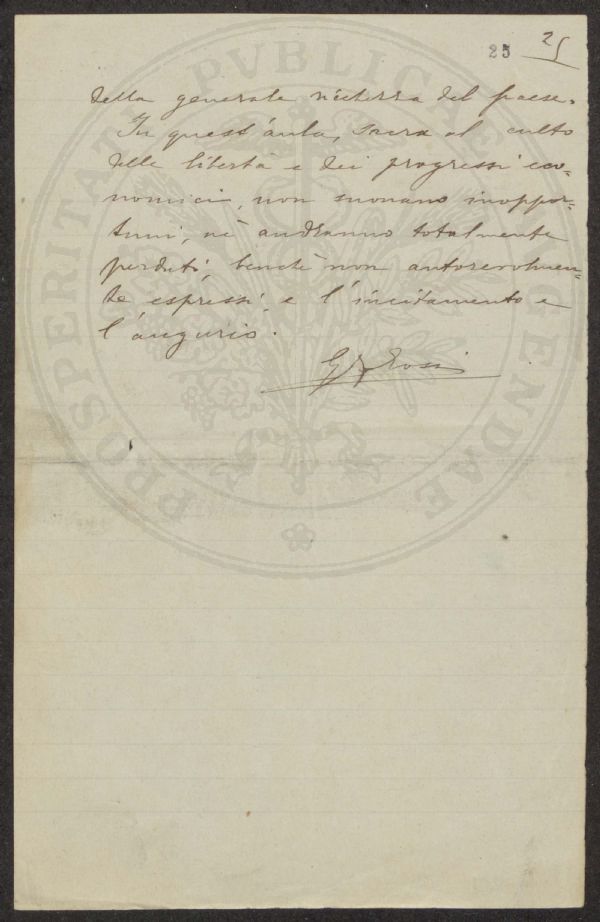 25 25
della generale ricchezza del paese.
In quest'aula, sacra al culto
delle libertà e dei progressi eco-
nomici, non suonano inoppor-
tuni, nè andranno totalmente
perduti, benchè non autorevolmen-
te espressi, e l'incitamento e
l'augurio.
Rossi
PROSPERITATI PVBLICAE AVGENDAE